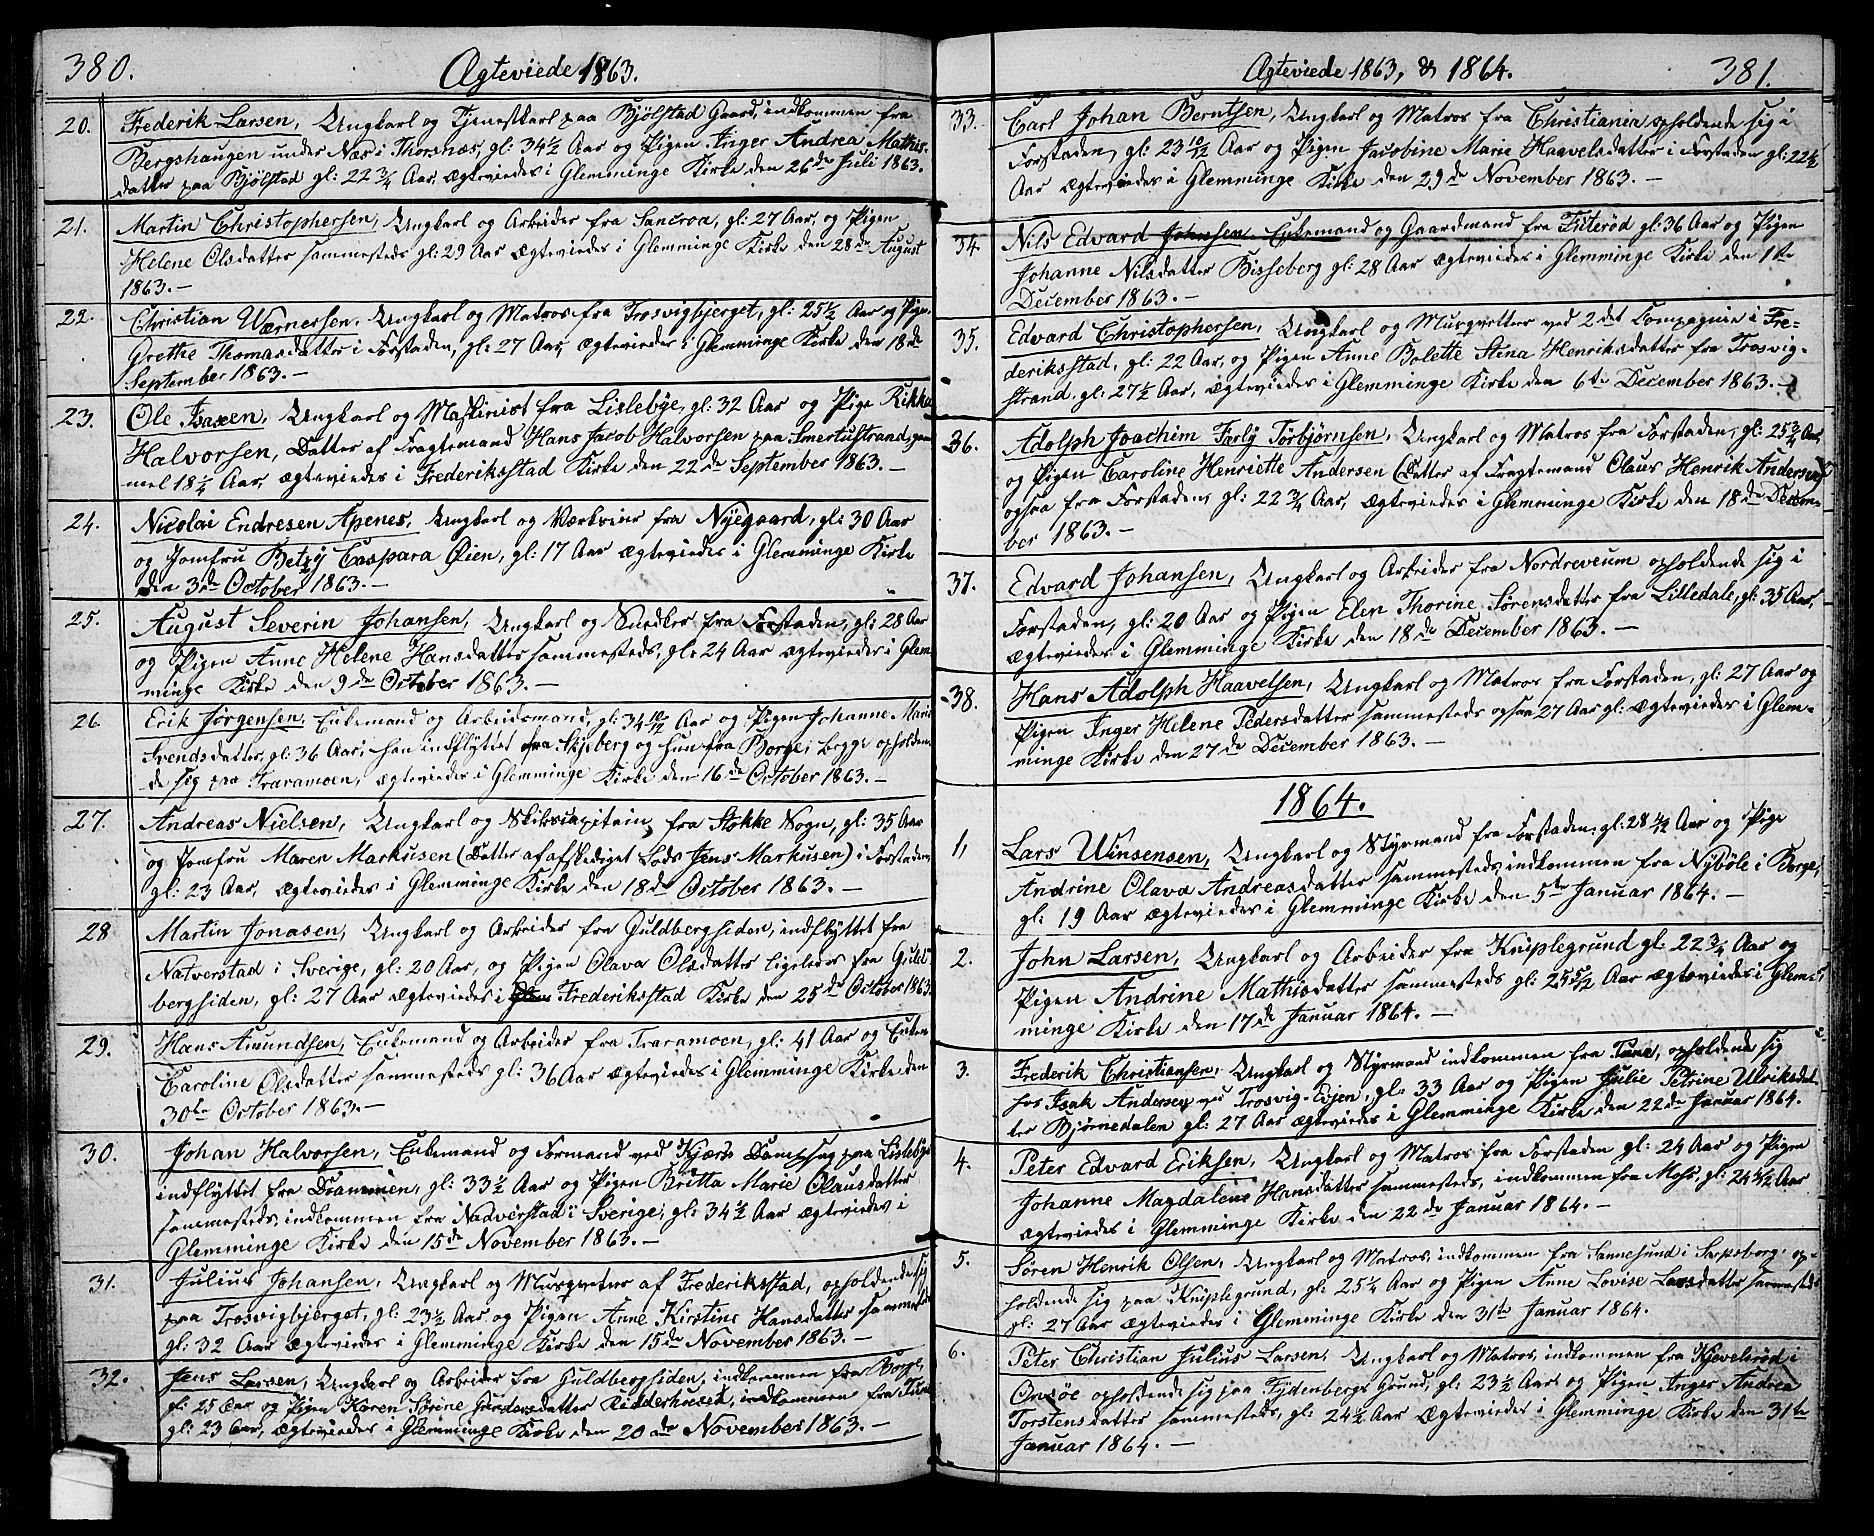 380.
Ægteviede 1863.
20. Frederik Larsen, Ungkarl og Tjenestkarl paa Bjölstad Gaard, indkommen fra
Bergshaugen under Næs i Thorsnæs, gl: 34½ Aar og Pigen Inger Andrea Mathis-
datter paa Bjölstad gl: 22¾ Aar, ægteviedes i Glemminge Kirke den 26de Juli 1863.
21. Martin Christophersen, Ungkarl og Arbeider fra Sancroa, gl: 27 Aar, og Pigen
Helene Olsdatter sammesteds gl: 29 Aar ægteviedes i Glemminge Kirke den 28de August
1863.—
22. Christian Wærnersen, Ungkarl og Matros fra Trosvigbjerget, gl: 25½ Aar og Pigen
Grethe Thomasdatter i Forstaden, gl: 27 Aar, ægteviedes i Glemminge Kirke den 18de
September 1863.—
23. Ole Isaxen, Ungkarl og Maskinist fra Lislebye, gl: 32 Aar og Pige Rikka
Halvorsen, Datter af Fragtemand Hans Jacob Halvorsen paa Smertustrand, gam-
mel 18¼ Aar, ægteviedes i Frederiksstad Kirke den 22de September 1863.—
24. Nicolai Endresen Apenes, Ungkarl og Værkeier fra Nyegaard, gl: 30 Aar
og Jomfru Betzy Caspara Øien, gl: 17 Aar ægteviedes i Glemminge Kirke
den 3de October 1863.—
25. August Severin Johansen, Ungkarl og Snedker fra Forstaden, gl: 28 Aar
og Pigen Anne Helene Hansdatter sammesteds, gl: 24 Aar ægteviedes i Glem
minge Kirke den 9de October 1863.—
26 Erik Jørgensen, Enkemand og Arbeidsmand, gl: 34 10/12 Aar og Pigen Johanne Marie
Svendsdatter, gl: 36 Aar; han indflyttet fra Skjeberg og hun fra Borge; begge opholden-
de sig paa Traramoen, ægteviedes i Glemminge Kirke den 16de October 1863.—
27. Andreas Nielsen, Ungkarl og Skibscapitain, fra Stokke Sogn, gl: 35 Aar
og Jomfru Maren Markusen (Datter af afskediget Lods Jens Markusen) i Forstaden,
gl: 23 Aar, ægteviedes i Glemminge Kirke den 18de October 1863.—
28 Martin Jonasen, Ungkarl og Arbeider fra Guldbergsiden, indflyttet fra
Natverstad i Sverige, gl: 20 Aar, og Pigen Olava Olsdatter ligeledes fra Guld
bergsiden, gl: 27 Aar ægteviedes i Frederiksstad Kirke den 25de October 1863.
29. Hans Amundsen, Enkemand og Arbeider fra Traramoen, gl: 41 Aar og Enken
Caroline Olsdatter sammesteds gl: 36 Aar ægteviedes i Glemminge Kirke den
30te October 1863.—
30. Johan Halvorsen, Enkemand og Formand ved Kjærs Dampsag paa Lislebye
indflyttet fra Drammen, gl: 33½ Aar og Pigen Britta Marie Olausdatter
sammesteds, indkommen fra Nadverstad i Sverige, gl: 34½ Aar ægteviedes i
Glemminge Kirke den 15de November 1863.—
31. Julius Johansen, Ungkarl og Musqueteer af Frederiksstad, opholdende sig
paa Trosvigbjerget, gl: 23½ Aar, og Pigen Anne Kirstine Hansdatter sammesteds
gl: 32 Aar ægteviedes i Glemminge Kirke den 15de November 1863.—
32. Jens Larsen, Ungkarl og Arbeider fra Guldbergsiden, indkommen fra Borge,
gl: 25 Aar og Pigen Karen Sørine Gundersdatter Ridderhuset, indkommen fra Tune
gl: 23 Aar, ægteviedes i Glemminge Kirke den 20de November 1863.—
Ægteviede 1863, & 1864.
381.
33. Carl Johan Berntsen, Ungkarl og Matros fra Christiania opholdende sig i
Forstaden, gl: 23 10/12 Aar og Pigen Jacobine Marie Haavelsdatter i Forstaden gl: 22½
Aar ægteviedes i Glemminge Kirke den 29de November 1863.—
34. Nils Edvard Johnsen, Enkemand og Gaardmand fra Fiterød gl: 36 Aar og Pigen
Johanne Nilsdatter Bisseberg gl: 28 Aar ægteviedes i Glemminge Kirke den 1ste
December 1863.—
35. Edvard Christophersen, Ungkarl og Musqvetter ved 2det Compagnie i Fre-
deriksstad, gl: 22 Aar, og Pigen Anne Bolette Stina Henriksdatter fra Trosvig-
strand, gl: 27½ Aar, ægteviedes i Glemminge Kirke den 6te December 1863.—
36. Adolph Joachim Farly Torbjørnsen, Ungkarl og Matros fra Forstaden, gl: 25¾ Aar,
og Pigen Caroline Henriette Andersen (Datter af Fragtemand Olaus Henrik Andersen)
ogsaa fra Forstaden, gl: 22¾ Aar, ægteviedes i Glemminge Kirke den 18de Decem-
ber 1863.—
37. Edvard Johansen, Ungkarl og Arbeider fra Nordreveum opholdende sig i
Forstaden, gl: 20 Aar og Pigen Elen Thorine Sörensdatter fra Lilledale, gl: 35 Aar,
ægteviedes i Glemminge Kirke den 18de December 1863.—
38. Hans Adolph Haavelsen, Ungkarl og Matros fra Forstaden, gl: 27 Aar og
Pigen Inger Helene Pedersdatter sammesteds ogsaa 27 Aar gl: ægteviedes i Glem-
minge Kirke den 27de December 1863.—
1864.
1, Lars Winsensen, Ungkarl og Styrmand fra Forstaden, gl: 28 Aar og Pige
Andrine Olava Andreasdatter sammesteds, indkommen fra Nyböle i Borge,
gl: 19 Aar ægteviedes i Glemminge Kirke den 5te Januar 1864.—
2. John Larsen, Ungkarl og Arbeider fra Kniplegrund gl: 22¾ Aar og
Pigen Andrine Mathisdatter sammesteds gl: 25 5/12 Aar ægteviedes i Glem-
minge Kirke den 17de Januar 1864.—
3. Frederik Christiansen, Ungkarl og Styrmand indkommen fra Tune, opholdende sig
hos Isak Andersen ved Trosvig-Edjen, gl: 33 Aar og Pigen Julie Petrine Ulriksdat
ter Bjørnedalen gl: 27 Aar ægteviedes i Glemminge Kirke den 22de Januar 1864.
4. Peter Edvard Eriksen, Ungkarl og Matros fra Forstaden gl: 24 Aar og Pigen
Johanne Magdalene Hansdatter sammesteds, indkommen fra Moss, gl: 24 5/12 Aar
ægteviedes i Glemminge Kirke den 22de Januar 1864.—
5. Søren Henrik Olsen, Ungkarl og Matros, indkommen fra Sannesund i Sarpsborg, op-
holdende sig paa Kniplegrund, gl: 25¼ Aar og Pigen Anne Lovise Larsdatter sammesteds
gl: 27 Aar ægteviedes i Glemminge Kirke den 31te Januar 1864.
6. Peter Christian Julius Larsen, Ungkarl og Matros, indkommen fra Kjevelsrød i
Onsöe opholdende sig paa Fydenbergs Grund, gl: 23½ Aar og Pigen Anger Andrea
Torstensdatter sammesteds, gl: 24½ Aar ægteviedes i Glemminge Kirke den 31te
Januar 1864.—